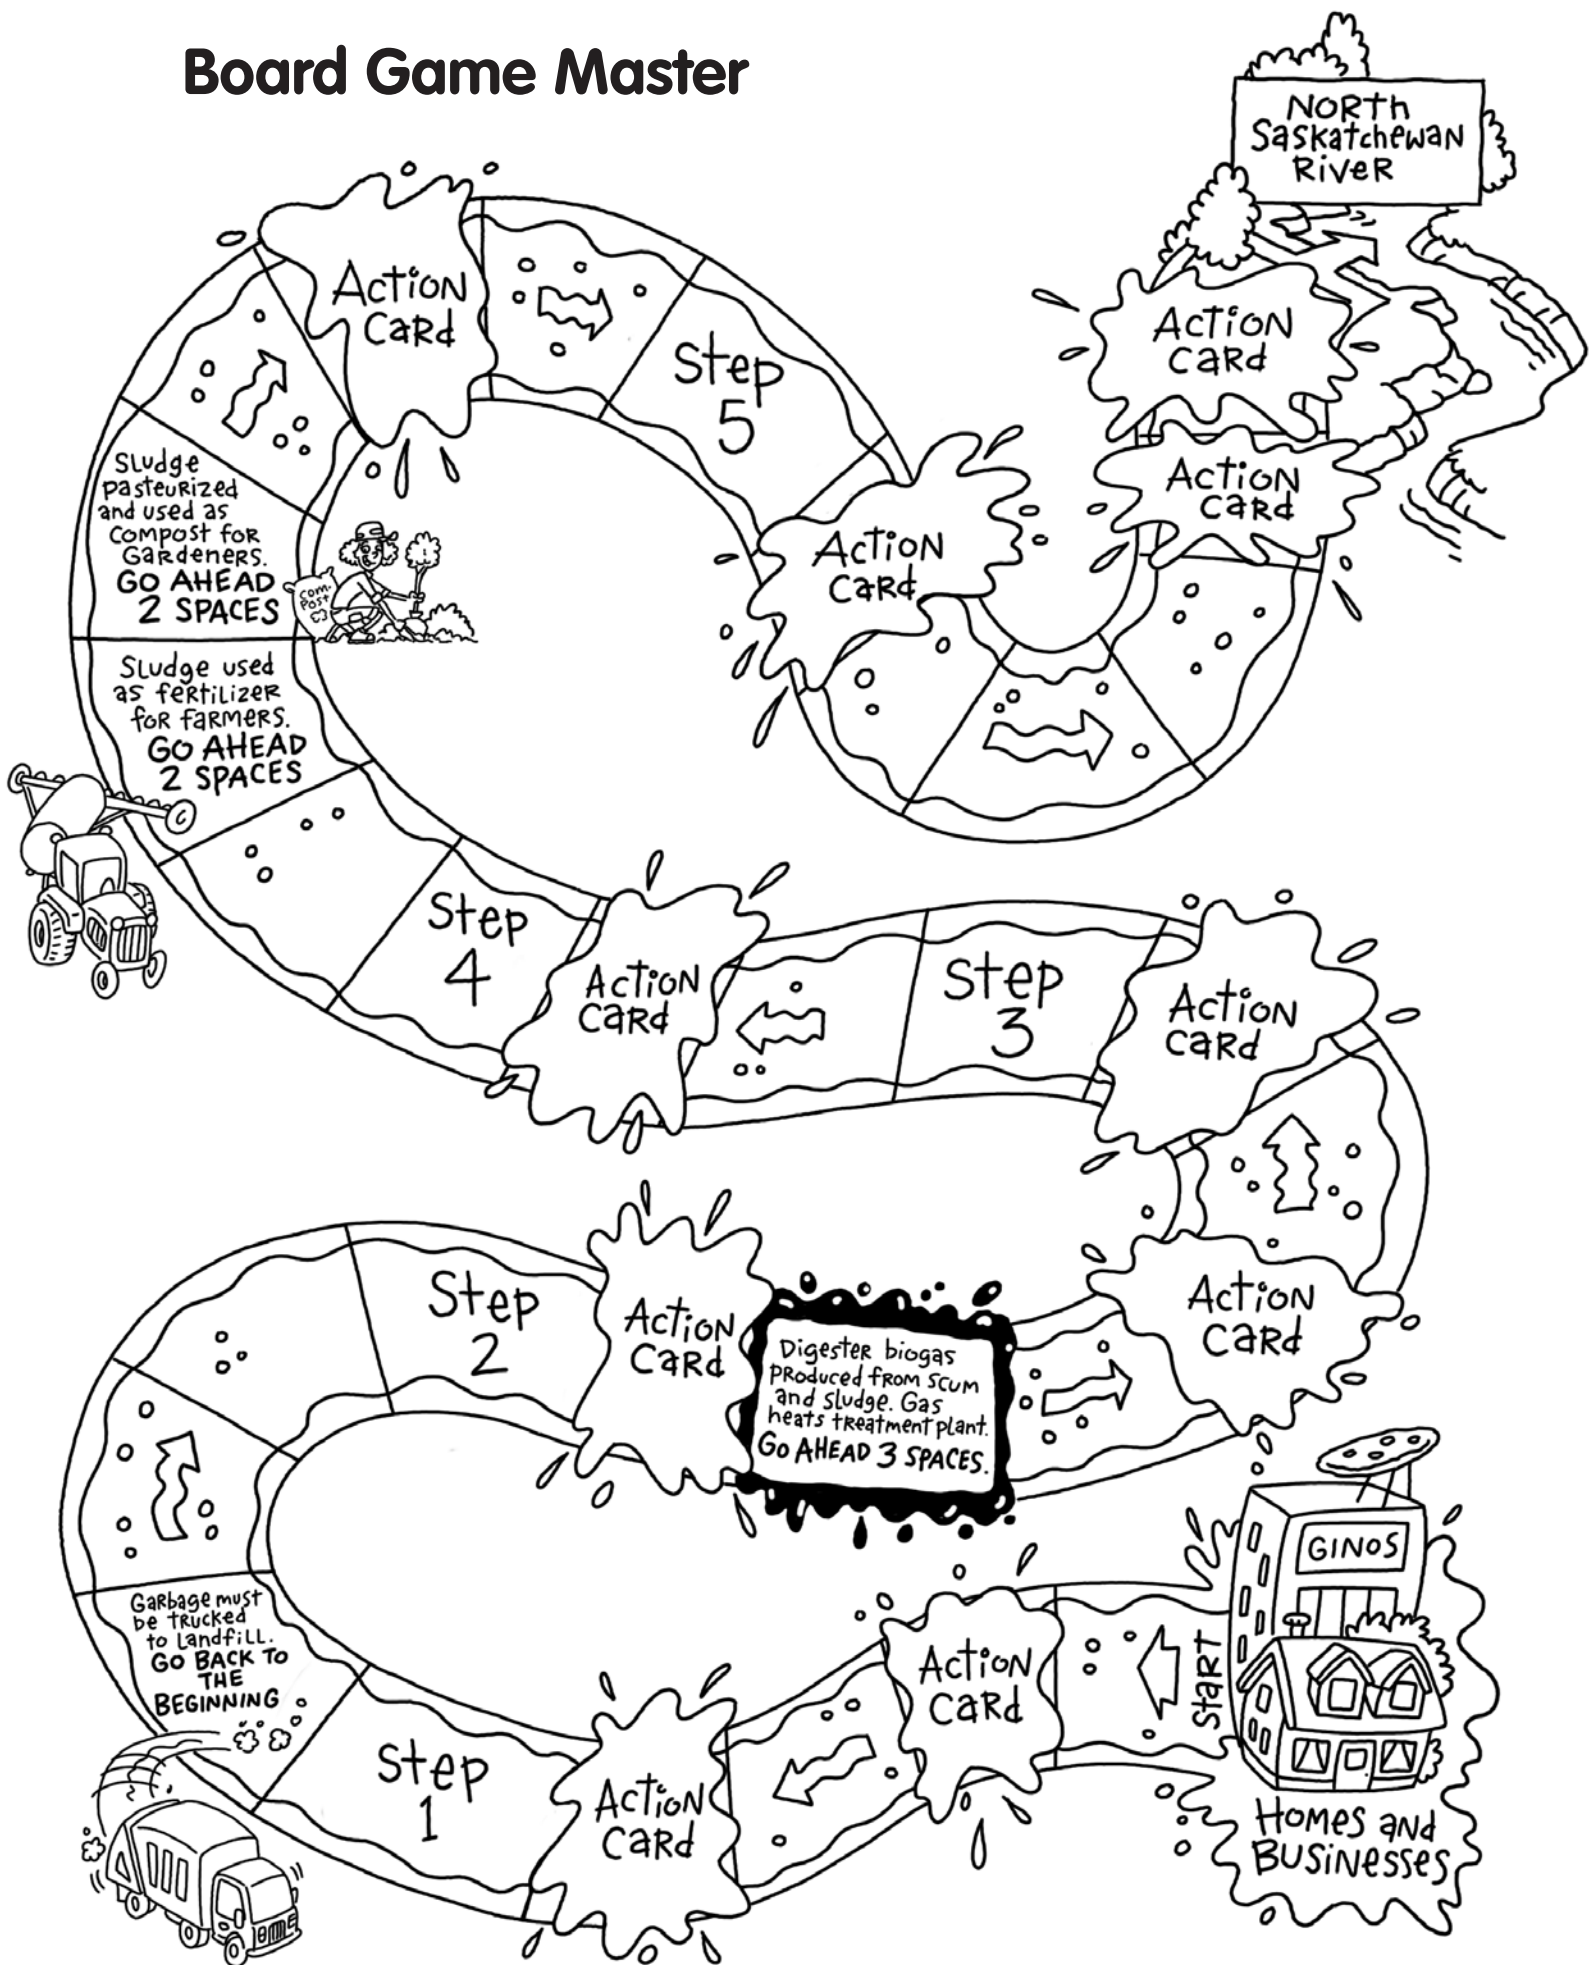 Board Game Master
NORTh
SaskatchewaN
RiveR
ActioN
CaRd
Step
5
ActioN
CaRd
ActioN
CaRd
ActioN
CaRd
Sludge
pasteurized
and used as
compost for
gardeners.
GO AHEAD
2 SPACES
COM-
POST
Sludge used
as fertilizer
for farmers.
GO AHEAD
2 SPACES
Step
4
ActioN
CaRd
Step
3
ActioN
CaRd
ActioN
CaRd
Step
2
ActioN
CaRd
Digester biogas
produced from scum
and sludge. Gas
heats treatment plant.
GO AHEAD 3 SPACES.
GINOS
START
Garbage must
be trucked
to landfill.
GO BACK TO
THE
BEGINNING
Step
1
ActioN
CaRd
ActioN
CaRd
HOMES AND
BUSINESSES